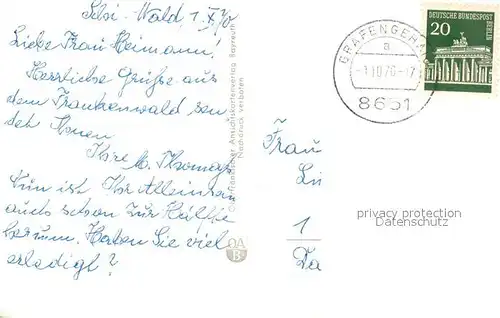 Schi-Wald, 1.X.70
Liebe Frau Heimann!
Herzliche Grüße aus
dem Frankenwald sen
det Ihnen
Ihre M. Thomas
Nun ist Ihr Alleinsein
auch schon zur Hälfte
herum. Haben Sie viel
erledigt?
Oberfränkischer Ansichtskartenverlag Bayreuth
Nachdruck verboten
OA
B
GRAFENGEH
a
-1.10.70-17
8651
DEUTSCHE BUNDESPOST
BERLIN
20
Frau
1
privacy protection
Datenschutz